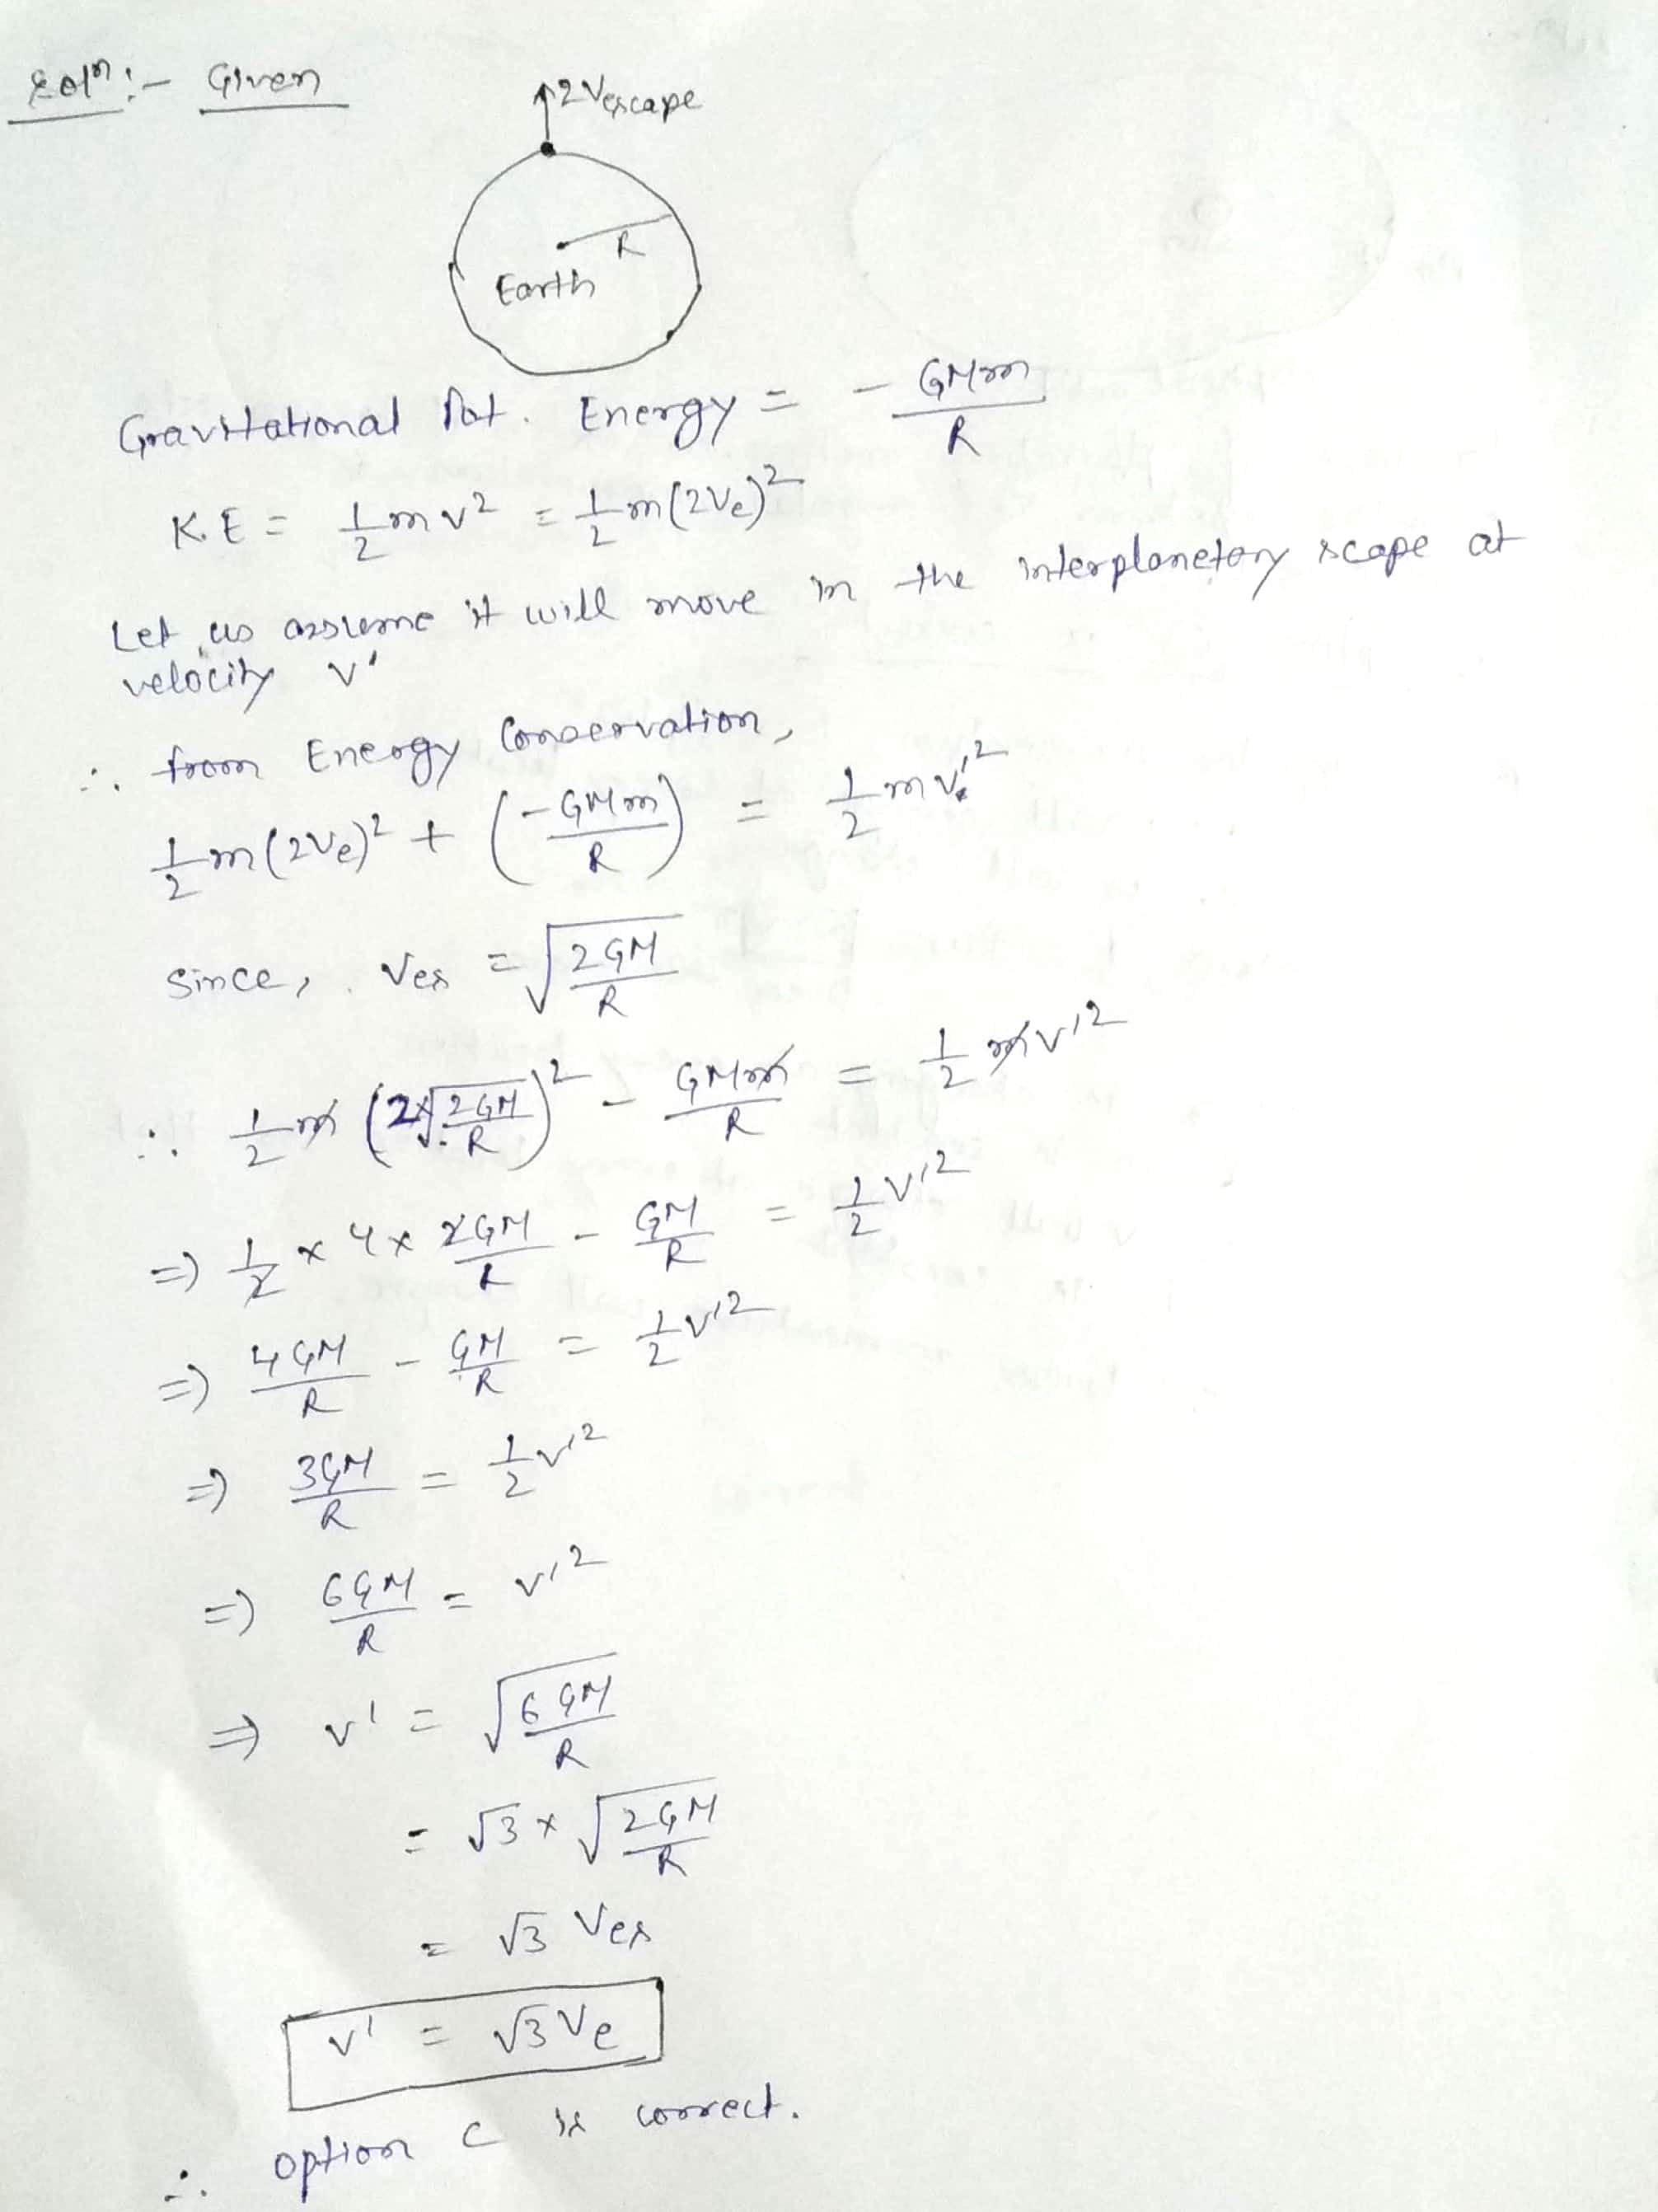 Soln:- Given
2Vescape
R
Earth
Gravitational Pot. Energy = - GMm/R
K.E = 1/2 mv² = 1/2 m(2Ve)²
Let us assume it will move in the interplanetary scape at
velocity v'
∴ from Energy Conservation,
1/2 m(2Ve)² + (-GMm/R) = 1/2 mv'²
since, Ves = √(2GM/R)
∴ 1/2 m (2×√(2GM/R))² - GMm/R = 1/2 mv'²
⇒ 1/2 × 4 × 2GM/R - GM/R = 1/2 v'²
⇒ 4GM/R - GM/R = 1/2 v'²
⇒ 3GM/R = 1/2 v'²
⇒ 6GM/R = v'²
⇒ v' = √(6GM/R)
= √3 × √(2GM/R)
= √3 Ves
v' = √3 Ve
∴ option c is correct.